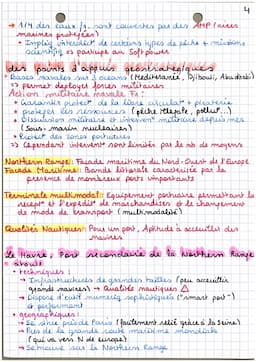 4
→ 1/4 des eaux fr. sont couvertes par des AMP (aires
marines protégées)
+ Implique interdict° de certains types de pêche + missions
scientifiq → participe au Soft power
des points d'appuis géostratégiques
+ Bases navales sur 3 océans (Méditerranée, Djibouti, Abu Dhabi)
=> permet déployer forces militaires
Action militaire navale Fr :
+ Garantir protect° de la libre circulat° + piraterie
+ protéger les ressources (pêche illégale, pollut°...)
+ Dissuasion militaire et intervent° militaire depuis mers
(Sous-marin nucléaires)
+ Exploit° des zones portuaires
=> Cependant intervent° sont limités par le nb de moyens
Northern Range : Façade maritime du Nord-Ouest de l'Europe
Façade Maritime : Bande littorale caractérisée par la
présence de nombreux ports importants
Terminale multimodal : Equipement portuaire permettant la
récept° et l'expédit° de marchandises et le changement
de mode de transport (multimodalité)
Qualités Nautiques : Pour un port, Aptitude à accueillir des
navires
Le Havre, Port secondaire de la Northern Range
→ atouts
• techniques :
→ Infrastructures de grandes tailles (peu accueillir
grands navires) → Qualité nautiques
→ Dispose d'outil numériq sophistiqués ("smart port")
→ performant
• géographiques :
→ Se situe près de Paris (fortement relié grâce à la Seine)
→ Près de la grande route maritime mondiale
(qui va vers N de Europe)
→ Se trouve sur la Northern Range